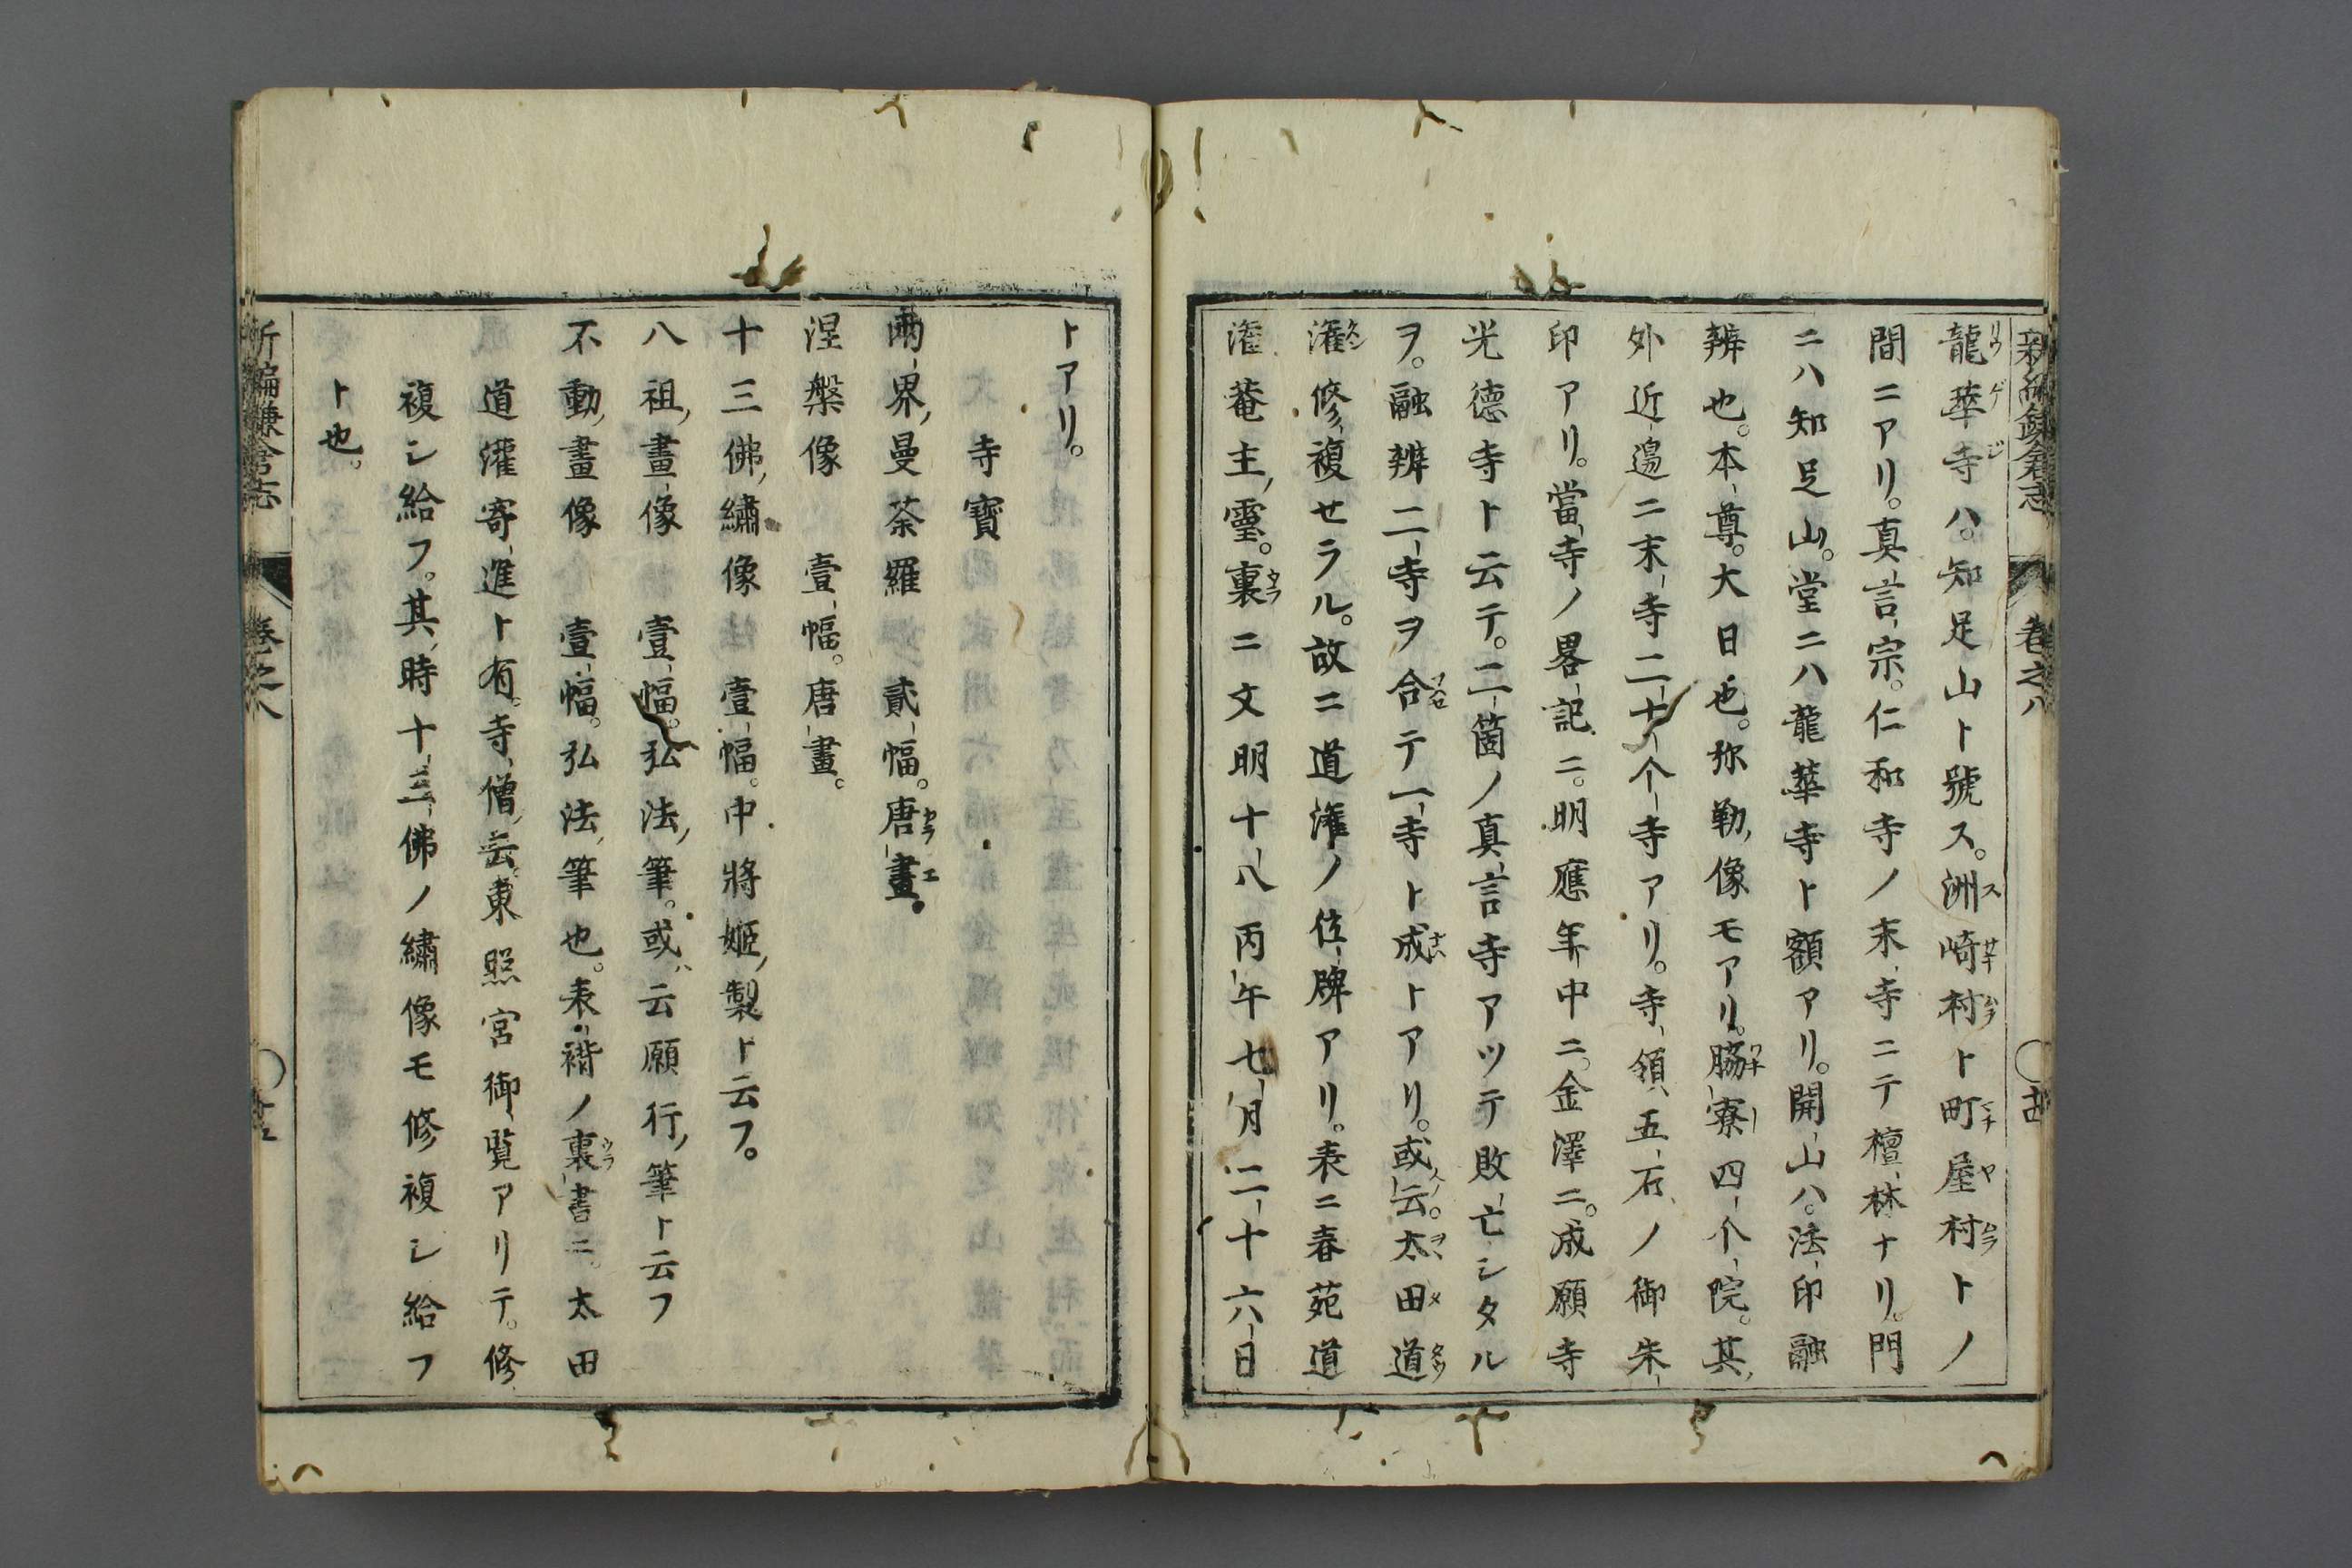 新編鎌倉志 卷之八
龍華寺ハ。知足山ト號ス。洲崎村ト町屋村トノ
間ニアリ。真言宗。仁和寺ノ末寺ニテ檀林ナリ。門
ニハ知足山。堂ニハ龍華寺ト額アリ。開山ハ。法印融
辨也。本尊。大日也。弥勒像モアリ。脇寮四个院。其
外近邊ニ末寺二十个寺アリ。寺領五石ノ御朱
印アリ。當寺ノ畧記ニ。明應年中ニ。金澤ニ。成願寺
光德寺ト云テ。二箇ノ真言寺アツテ敗亡シタル
ヲ。融辨二寺ヲ合テ一寺ト成トアリ。或云。太田道
灌修複セラル。故ニ道灌ノ位牌アリ。表ニ春苑道
灌菴主靈。裏ニ文明十八丙午七月二十六日
トアリ。
寺寶
兩界曼荼羅 貳幅。唐畫。
涅槃像 壹幅。唐畫。
十三佛繡像 壹幅。中將姬製ト云フ。
八祖畫像 壹幅。弘法筆。或云願行筆ト云フ
不動畫像 壹幅。弘法筆也。表褙ノ裏書ニ。太田
道灌寄進ト有。寺僧云。東照宮御覧アリテ。修
複シ給フ。其時十三佛ノ繡像モ修複シ給フ
ト也。
新編鎌倉志 卷之八